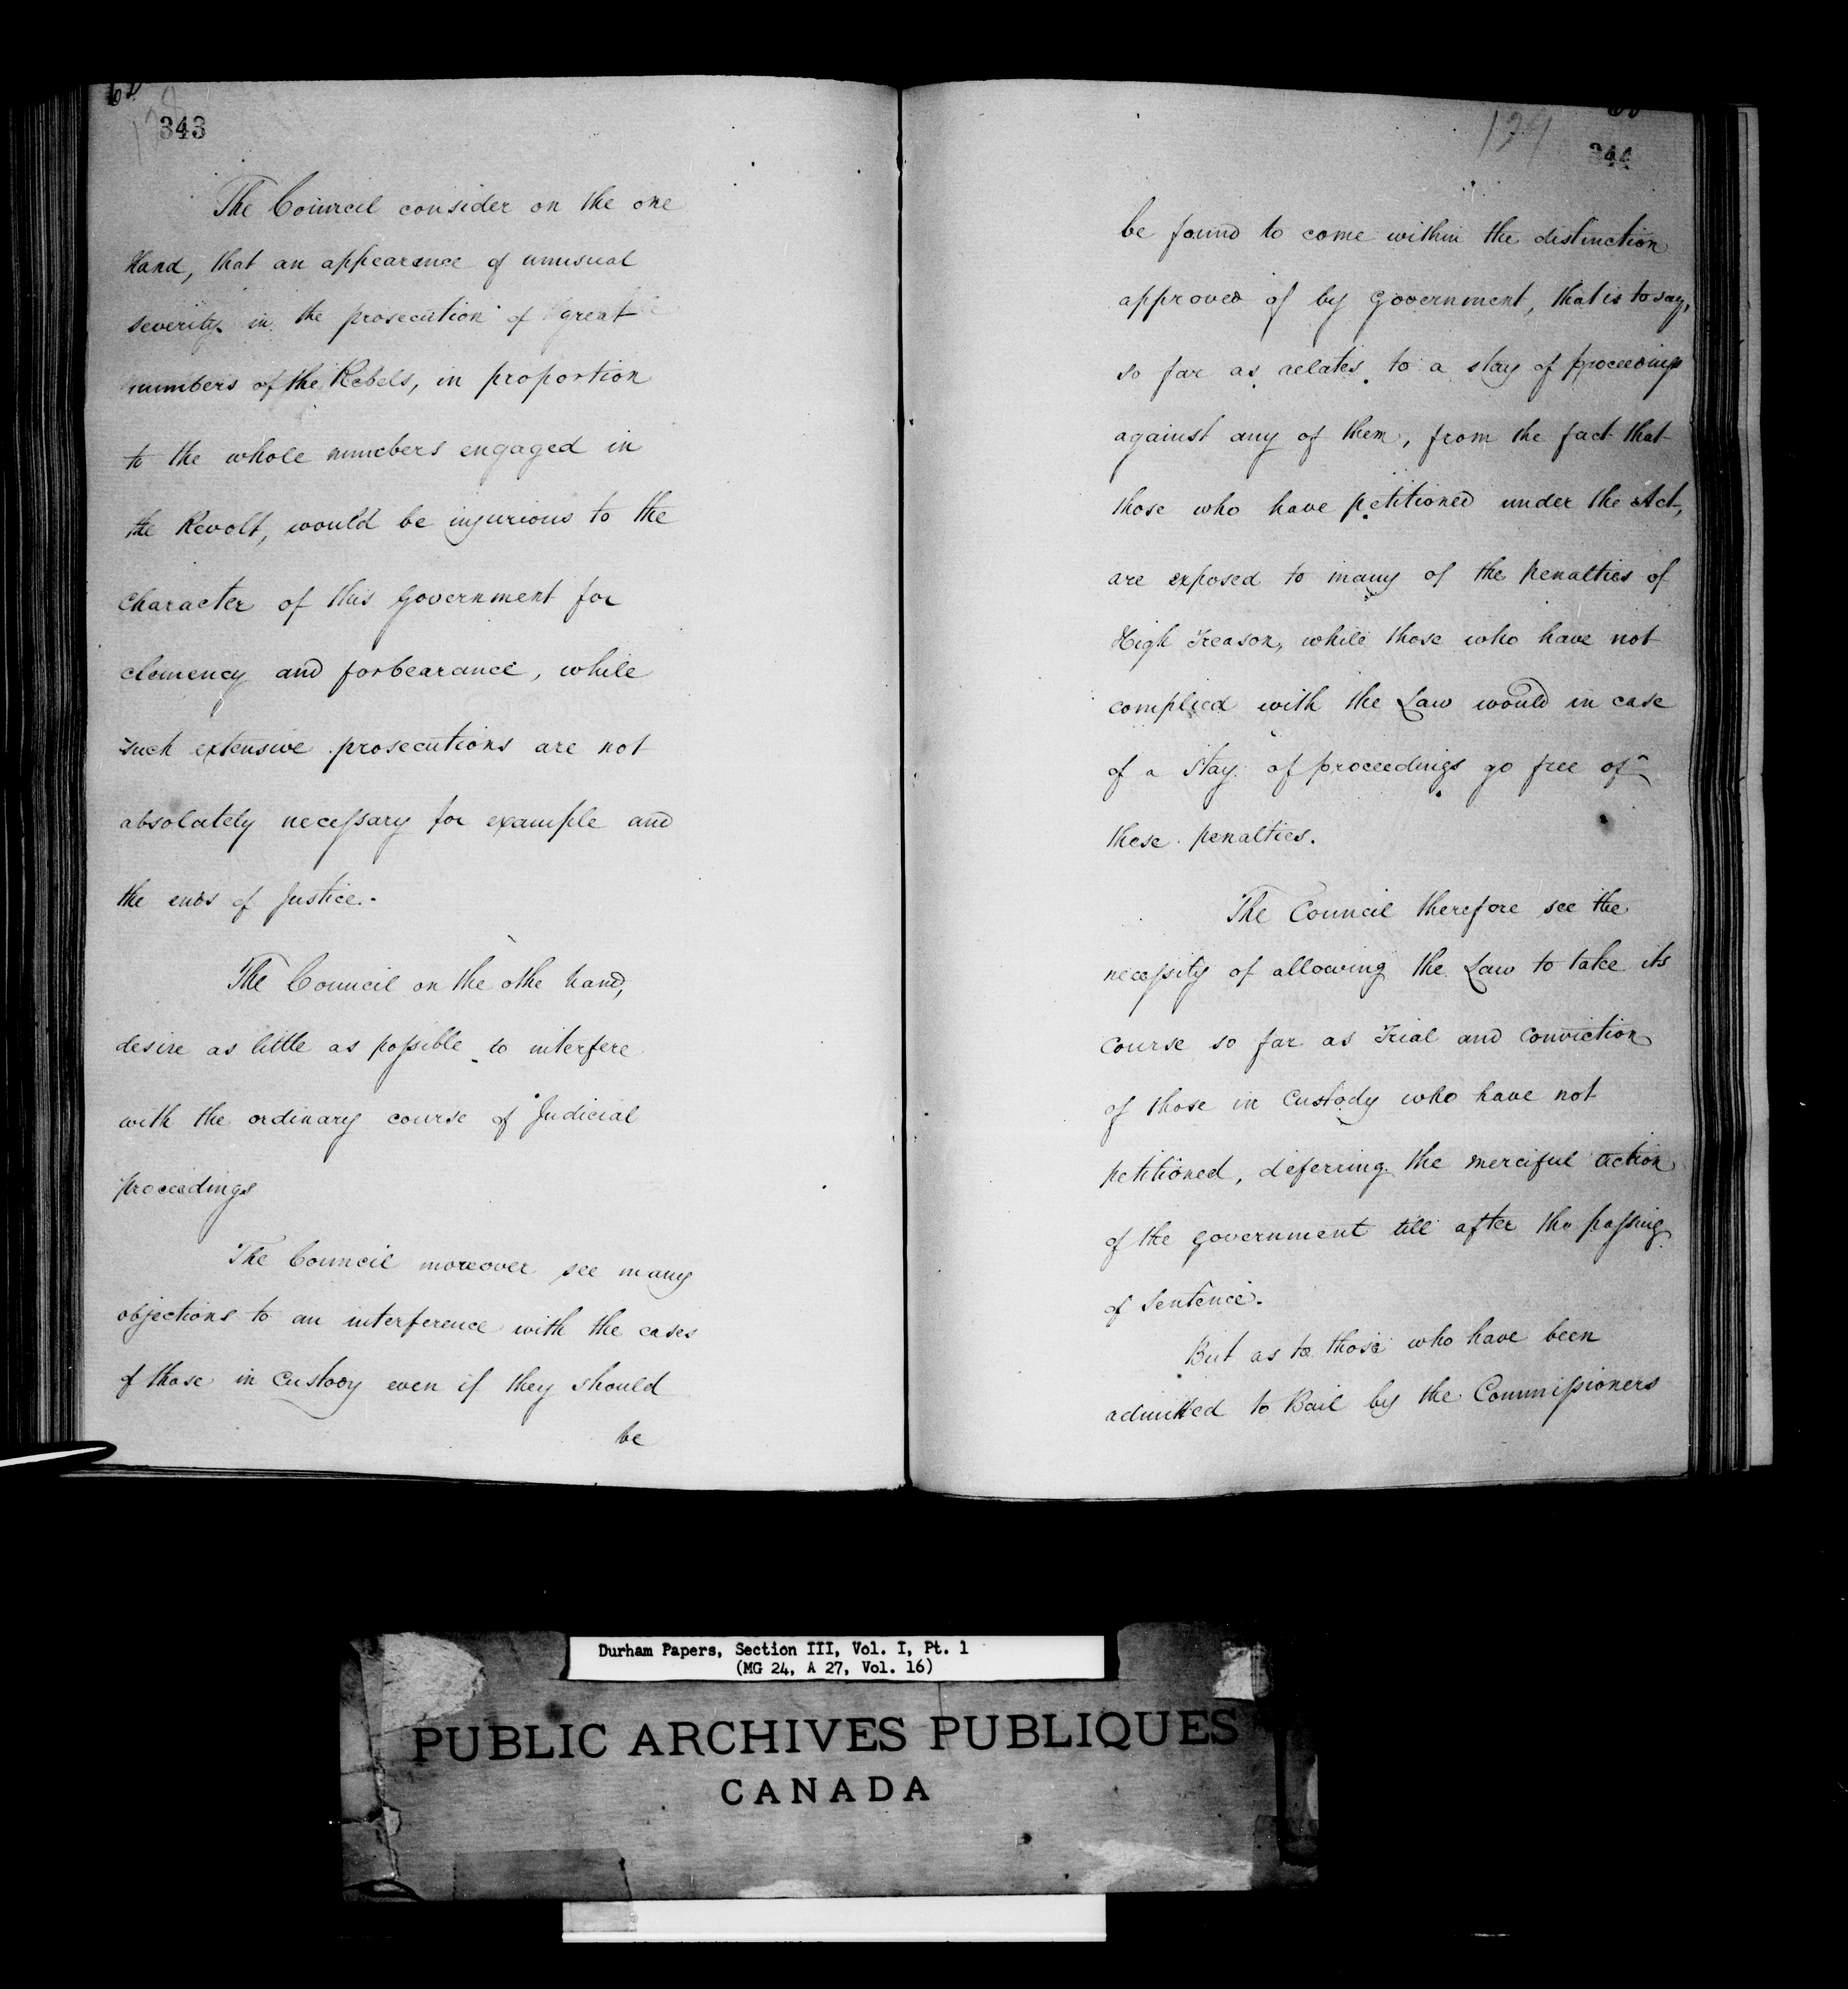 343
The Council consider on the one
Hand, that an appearance of unusual
severity in the prosecution of great
numbers of the Rebels, in proportion
to the whole numbers engaged in
the Revolt, would be injurious to the
Character of this Government for
clemency and forbearance, while
such extensive prosecutions are not
absolutely necessary for example and
the ends of Justice.
The Council on the othe hand,
desire as little as possible to interfere
with the ordinary course of Judicial
proceedings
The Council moreover see many
objections to an interference with the cases
of those in Custody even if they should
be
129
344
be found to come within the distinction
approved of by Government, that is to say,
so far as relates to a stay of proceedings
against any of them, from the fact that
those who have petitioned under the Act,
are exposed to many of the penalties of
High Treason, while those who have not
complied with the Law would in case
of a Stay of proceedings go free of
these penalties.
The Council therefore see the
necessity of allowing the Law to take its
Course so far as Trial and Conviction
of those in Custody who have not
petitioned, deferring the merciful action
of the Government till after the passing
of Sentence.
But as to those who have been
admitted to Bail by the Commissioners
Durham Papers, Section III, Vol. I, Pt. 1
(MG 24, A 27, Vol. 16)
PUBLIC ARCHIVES PUBLIQUES
CANADA